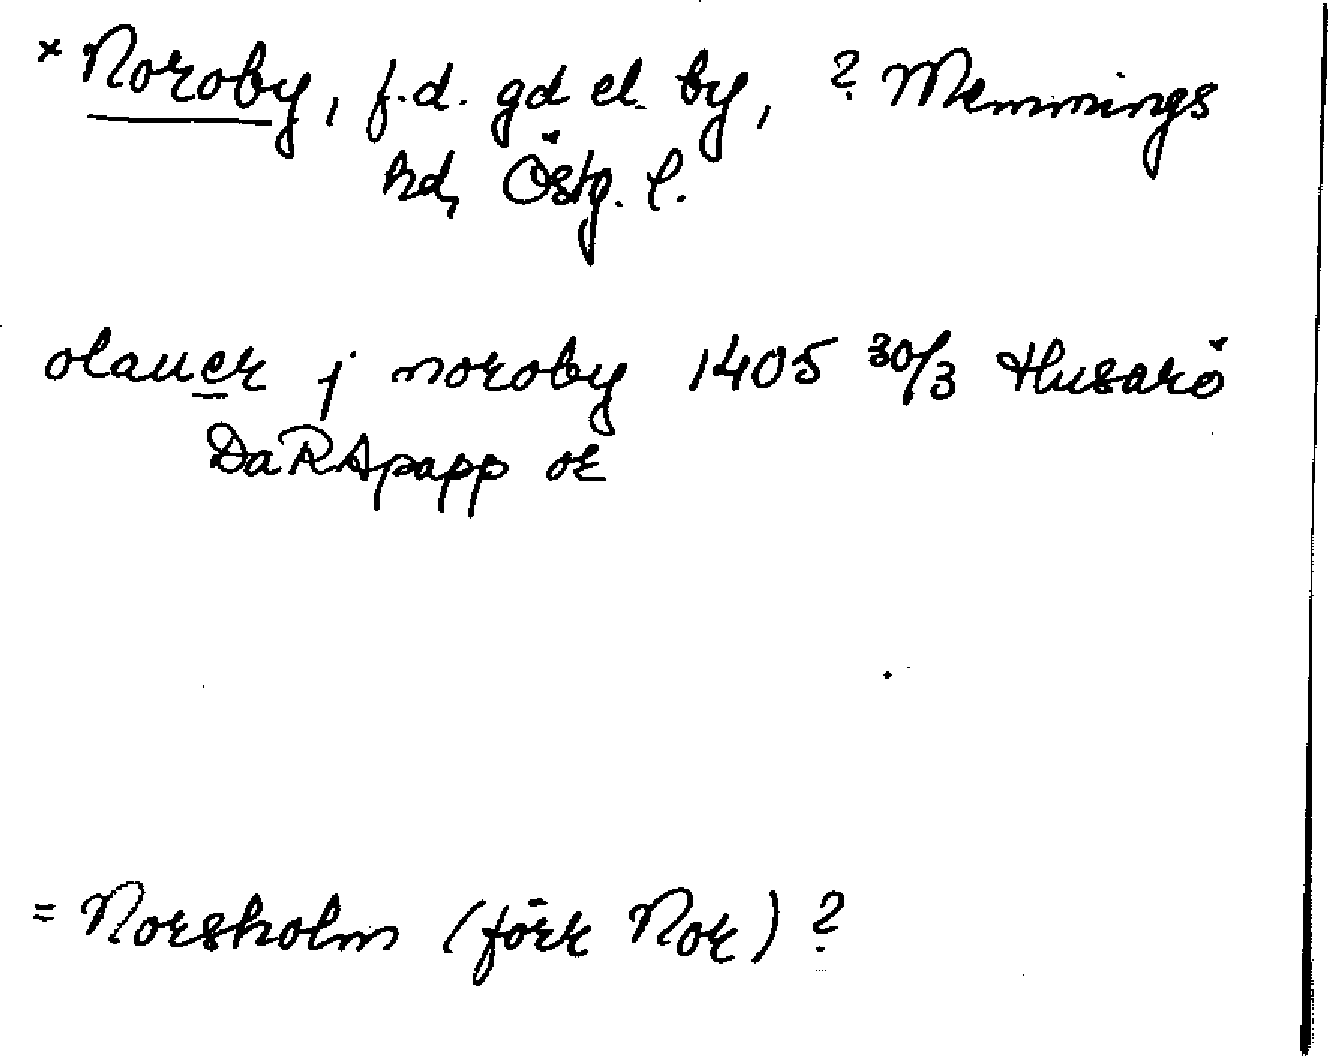 × Noroby, f.d. gd el. by, ? Memmings
hd, Östg. l.
olauer j noroby 1405 30/3 Husarö
DaRApapp or
= Norsholm (förr Nor) ?